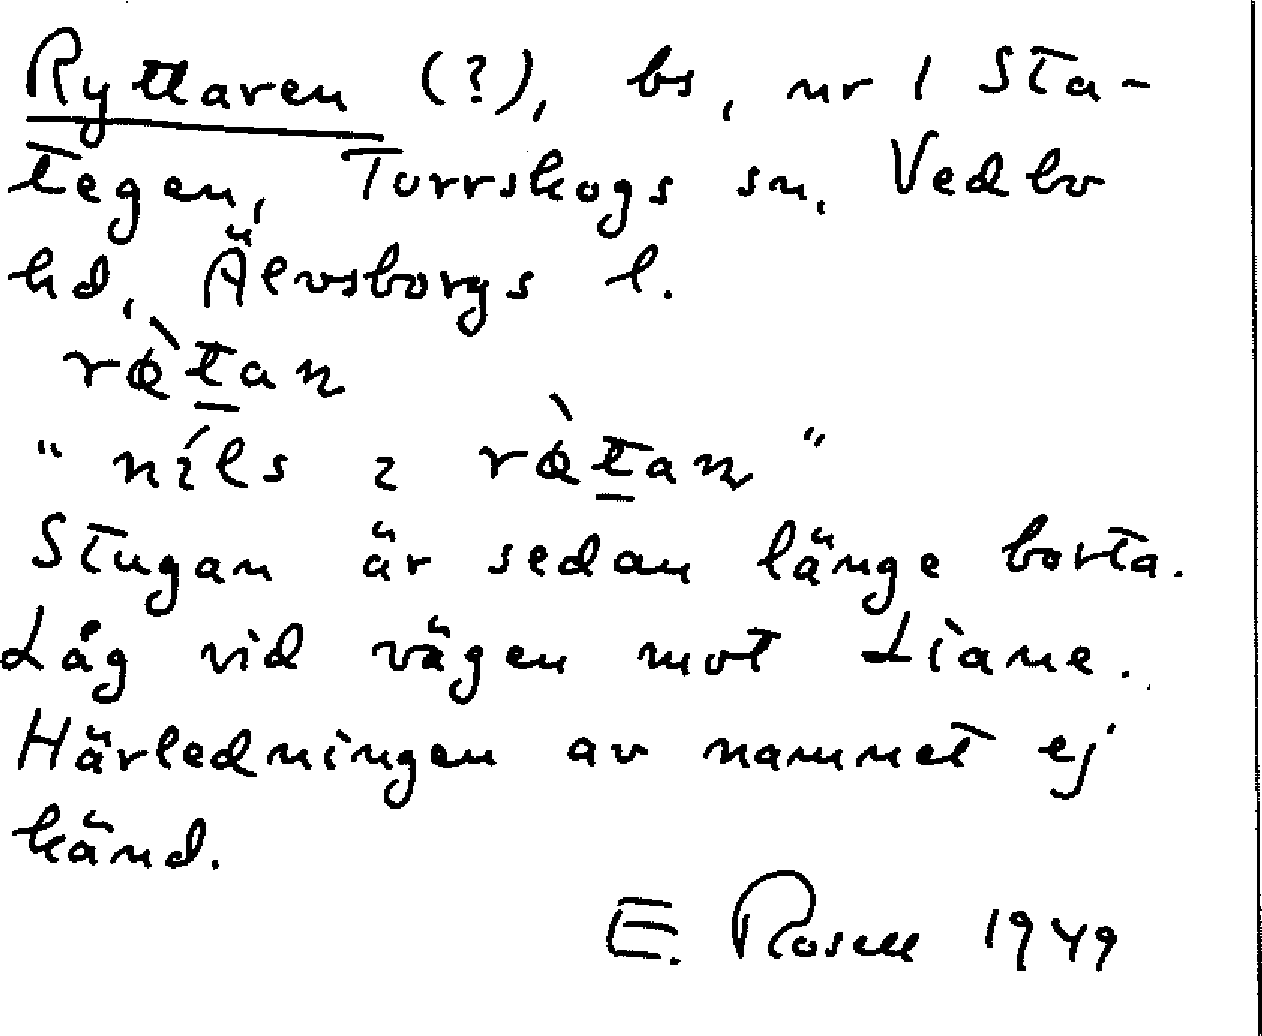 Ryttaren (?), bs, nr 1 Sta-
tegen, Torrskogs sn, Vedbo
hd, Älvsborgs l.
rø̀t̲an
"níls i rø̀t̲an"
Stugan är sedan länge borta.
Låg vid vägen mot Liane.
Härledningen av namnet ej
känd.
E. Rosell 1949